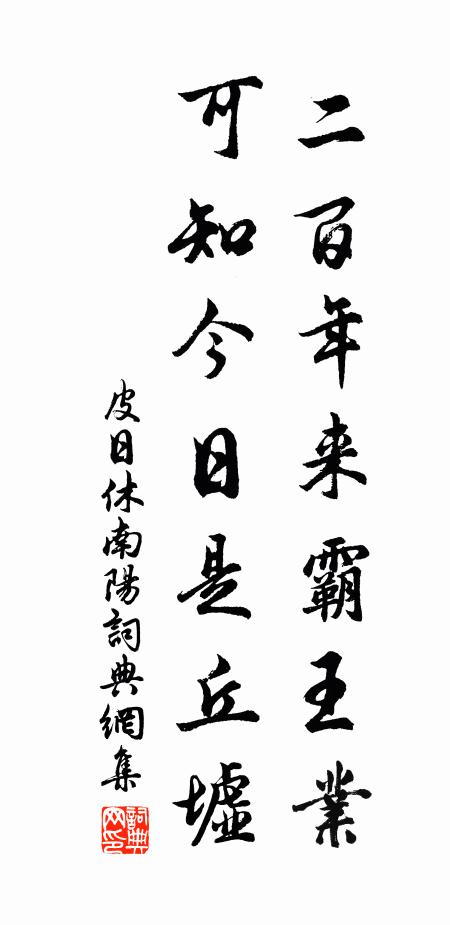 二百年来霸王業
可知今日是丘墟
皮日休南陽詞典網集
詞典網印